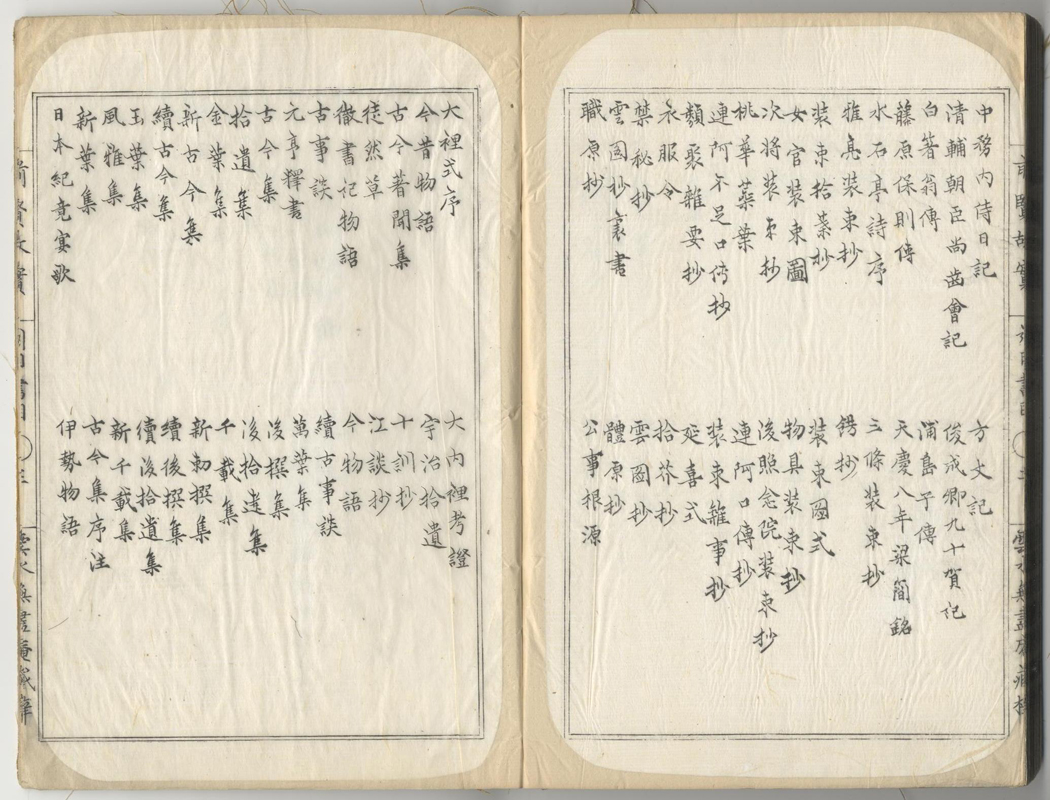 中務内侍日記　方丈記
清輔朝臣尚齒會記　俊成卿九十賀記
白箸翁傳　浦島子傳
藤原保則傳　天慶八年梁簡銘
水石亭詩序　三條装束抄
雅亮装束抄　錺抄
装束拾葉抄　装束圖式
女官装束圖　物具装束抄
次将装束抄　後照念院装束抄
桃華蘂葉　連阿口傳抄
連阿不足口傳抄　装束雜事抄
類聚雜要抄　延喜式
衣服令　拾芥抄
禁秘抄　雲圖抄
雲圖抄裏書　體原抄
職原抄　公事根源
大裡式序　大内裡考證
今昔物語　宇治拾遺
古今著聞集　十訓抄
徒然草　江談抄
徹書記物語　今物語
古事談　續古事談
元亨釋書　萬葉集
古今集　後撰集
拾遺集　後拾遺集
金葉集　千載集
新古今集　新勅撰集
續古今集　續後撰集
玉葉集　續後拾遺集
風雅集　新千載集
新葉集　古今集序注
日本紀竟宴歌　伊勢物語